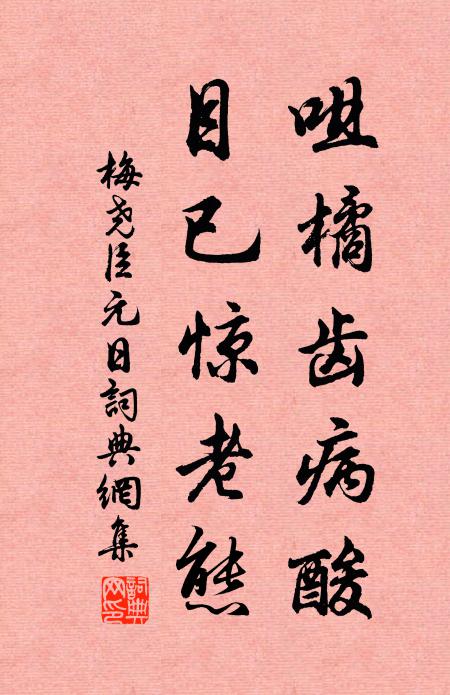 咀橘齿病酸
目已惊老態
梅尧臣元日詞典網集
詞典
网印